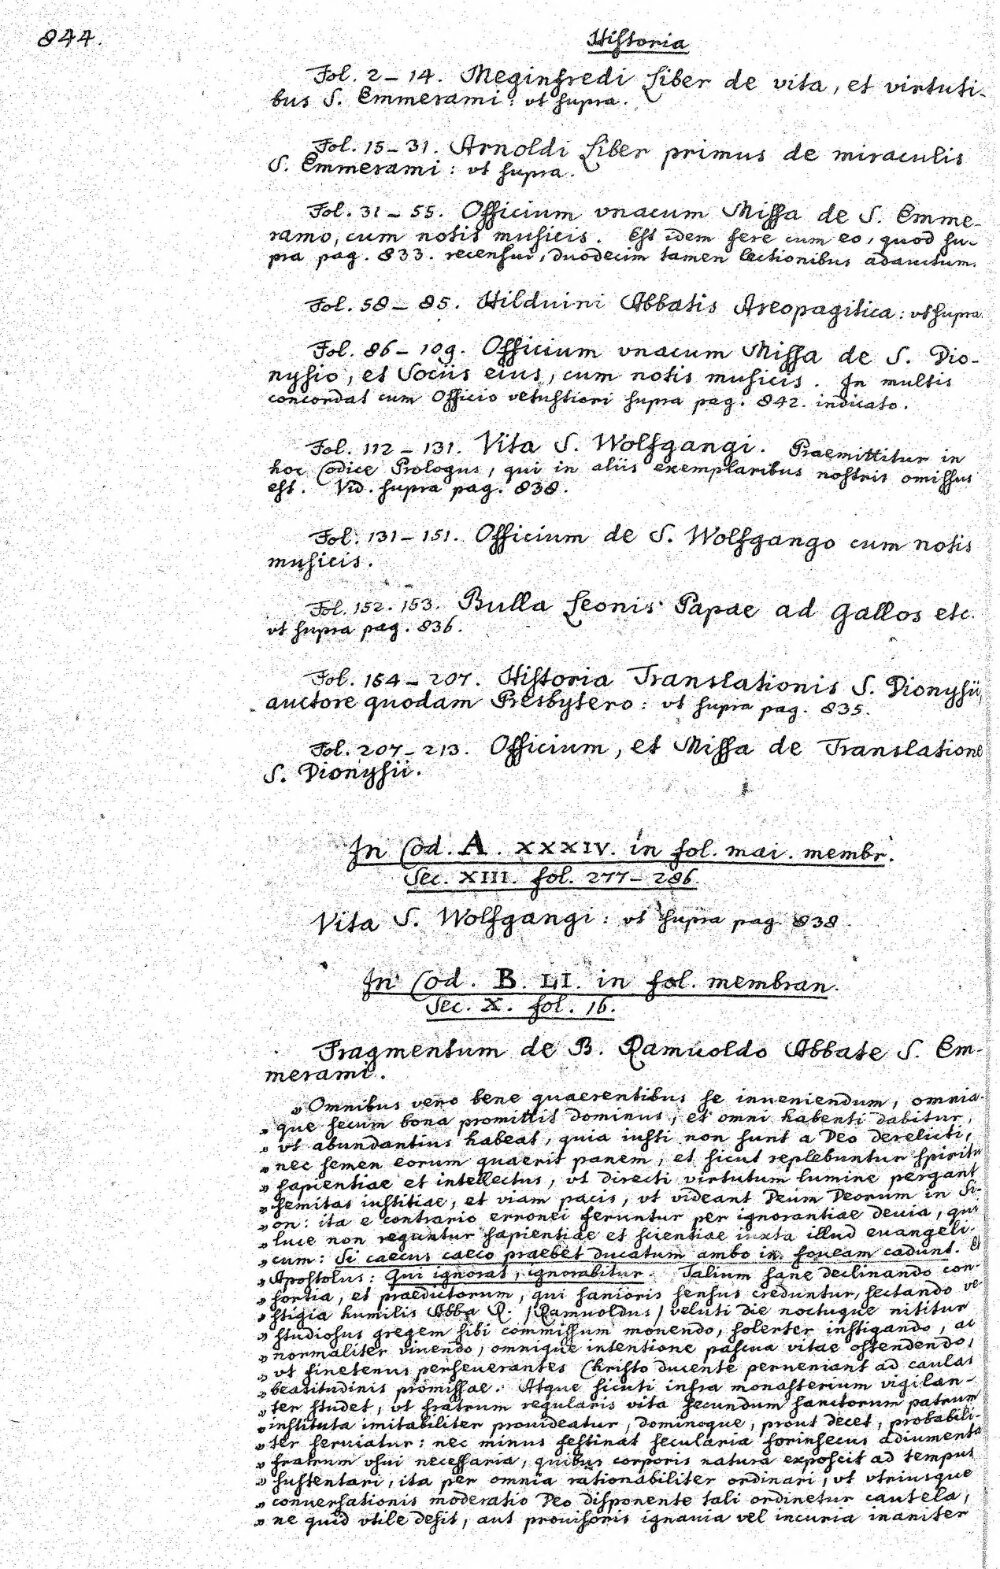 844.
Historia
Fol. 2 – 14. Meginfredi Liber de vita, et virtuti-
bus S. Emmerami: vt supra.
Fol. 15 – 31. Arnoldi Liber primus de miraculis
S. Emmerami: vt supra.
Fol. 31 – 55. Officium vnacum Missa de S. Emme-
ramo, cum notis musicis. Est idem fere cum eo, quod su-
pra pag. 833. recensui, duodecim tamen lectionibus adauctum.
Fol. 58 – 85. Hilduini Abbatis Areopagitica: vt supra.
Fol. 86 – 109. Officium vnacum Missa de S. Dio-
nysio, et Sociis eius, cum notis musicis. In multis
concordat cum Officio vetustiori supra pag. 842. indicato.
Fol. 112 – 131. Vita S. Wolfgangi. Praemittitur in
hoc Codice Prologus, qui in aliis exemplaribus nostris omissus
est. Vid. supra pag. 838.
Fol. 131 – 151. Officium de S. Wolfgango cum notis
musicis.
Fol. 152. 153. Bulla Leonis Papae ad Gallos etc.
vt supra pag. 836.
Fol. 154 – 207. Historia Translationis S. Dionysii,
auctore quodam Presbytero: vt supra pag. 835.
Fol. 207 – 213. Officium, et Missa de Translatione
S. Dionysii.
In Cod. A. XXXIV. in fol. mai. membr.
Sec. XIII. fol. 277 – 286.
Vita S. Wolfgangi: vt supra pag. 838.
In Cod. B. LI. in fol. membran.
Sec. X. fol. 16.
Fragmentum de B. Ramuoldo Abbate S. Em-
merami.
„Omnibus vero bene quaerentibus se inueniendum, omnia-
„que secum bona promittit dominus, et omni habenti dabitur,
„vt abundantius habeat, quia iusti non sunt a Deo derelicti,
„nec semen eorum quaerit panem, et sicut replebuntur spiritu
„sapientiae et intellectus, vt directi virtutum lumine pergant
„semitas iustitiae, et viam pacis, vt videant Deum Deorum in Si-
„on: ita e contrario erronei feruntur per ignorantiae deuia, qui
„luce non reguntur sapientiae et scientiae iuxta illud euangeli-
„cum: Si caecus caeco praebet ducatum ambo in foueam cadunt. Et
„Apostolus: Qui ignorat, ignorabitur. Talium sane declinando con-
„sortia, et praedictorum, qui sanioris sensus creduntur, sectando ve-
„stigia humilis Abba R. /Ramuoldus/ veluti die noctuque nititur
„studiosus gregem sibi commissum monendo, solerter instigando, ac
„normaliter viuendo, omnique intentione pascua vitae ostendendo,
„vt finetenus perseuerantes Christo ducente perueniant ad caulas
„beatitudinis promissae. Atque sicuti infra monasterium vigilan-
„ter studet, vt fratrum regularis vita secundum sanctorum patrum
„instituta imitabiliter prouideatur, dominoque, prout decet, probabili-
„ter seruiatur: nec minus festinat secularia forinsecus adiumenta
„fratrum vsui necessaria, quibus corporis natura exposcit ad tempus
„sustentari, ita per omnia rationabiliter ordinari, vt vtriusque
„conuersationis moderatio Deo disponente tali ordinetur cautela,
„ne quid vtile desit, aut prouisoris ignauia vel incuria inaniter